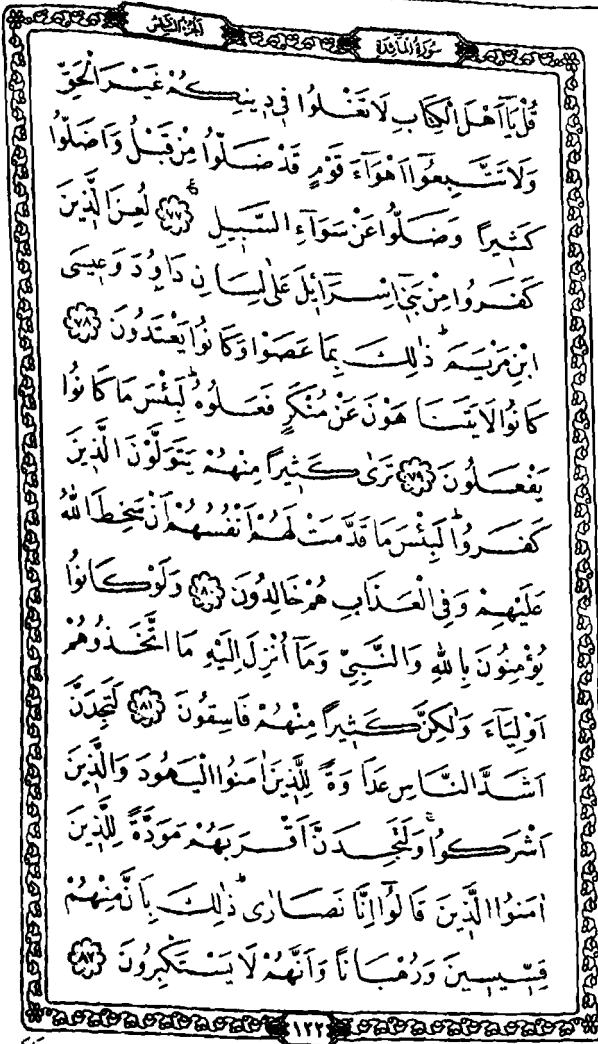 سُورَةُ الْمَائِدَةِ
الجزء السادس
قُلْ يَآ اَهْلَ الْكِتَابِ لَا تَغْلُوا فٖي دٖينِكُمْ غَيْرَ الْحَقِّ
وَلَا تَتَّبِعُٓوا اَهْوَٓاءَ قَوْمٍ قَدْ ضَلُّوا مِنْ قَبْلُ وَاَضَلُّوا
كَثٖيرًا وَضَلُّوا عَنْ سَوَٓاءِ السَّبٖيلِ ﴿٧٧﴾ لُعِنَ الَّذٖينَ
كَفَرُوا مِنْ بَنٖٓي اِسْرَٓائٖلَ عَلٰى لِسَانِ دَاوُ۫دَ وَعٖيسَى
ابْنِ مَرْيَمَ ذٰلِكَ بِمَا عَصَوْا وَكَانُوا يَعْتَدُونَ ﴿٧٨﴾
كَانُوا لَا يَتَنَاهَوْنَ عَنْ مُنْكَرٍ فَعَلُوهُ لَبِئْسَ مَا كَانُوا
يَفْعَلُونَ ﴿٧٩﴾ تَرٰى كَثٖيرًا مِنْهُمْ يَتَوَلَّوْنَ الَّذٖينَ
كَفَرُوا لَبِئْسَ مَا قَدَّمَتْ لَهُمْ اَنْفُسُهُمْ اَنْ سَخِطَ اللّٰهُ
عَلَيْهِمْ وَفِي الْعَذَابِ هُمْ خَالِدُونَ ﴿٨٠﴾ وَلَوْ كَانُوا
يُؤْمِنُونَ بِاللّٰهِ وَالنَّبِيِّ وَمَٓا اُنْزِلَ اِلَيْهِ مَا اتَّخَذُوهُمْ
اَوْلِيَٓاءَ وَلٰكِنَّ كَثٖيرًا مِنْهُمْ فَاسِقُونَ ﴿٨١﴾ لَتَجِدَنَّ
اَشَدَّ النَّاسِ عَدَاوَةً لِلَّذٖينَ اٰمَنُوا الْيَهُودَ وَالَّذٖينَ
اَشْرَكُوا وَلَتَجِدَنَّ اَقْرَبَهُمْ مَوَدَّةً لِلَّذٖينَ
اٰمَنُوا الَّذٖينَ قَالُٓوا اِنَّا نَصَارٰى ذٰلِكَ بِاَنَّ مِنْهُمْ
قِسّٖيسٖينَ وَرُهْبَانًا وَاَنَّهُمْ لَا يَسْتَكْبِرُونَ ﴿٨٢﴾
١٢٢